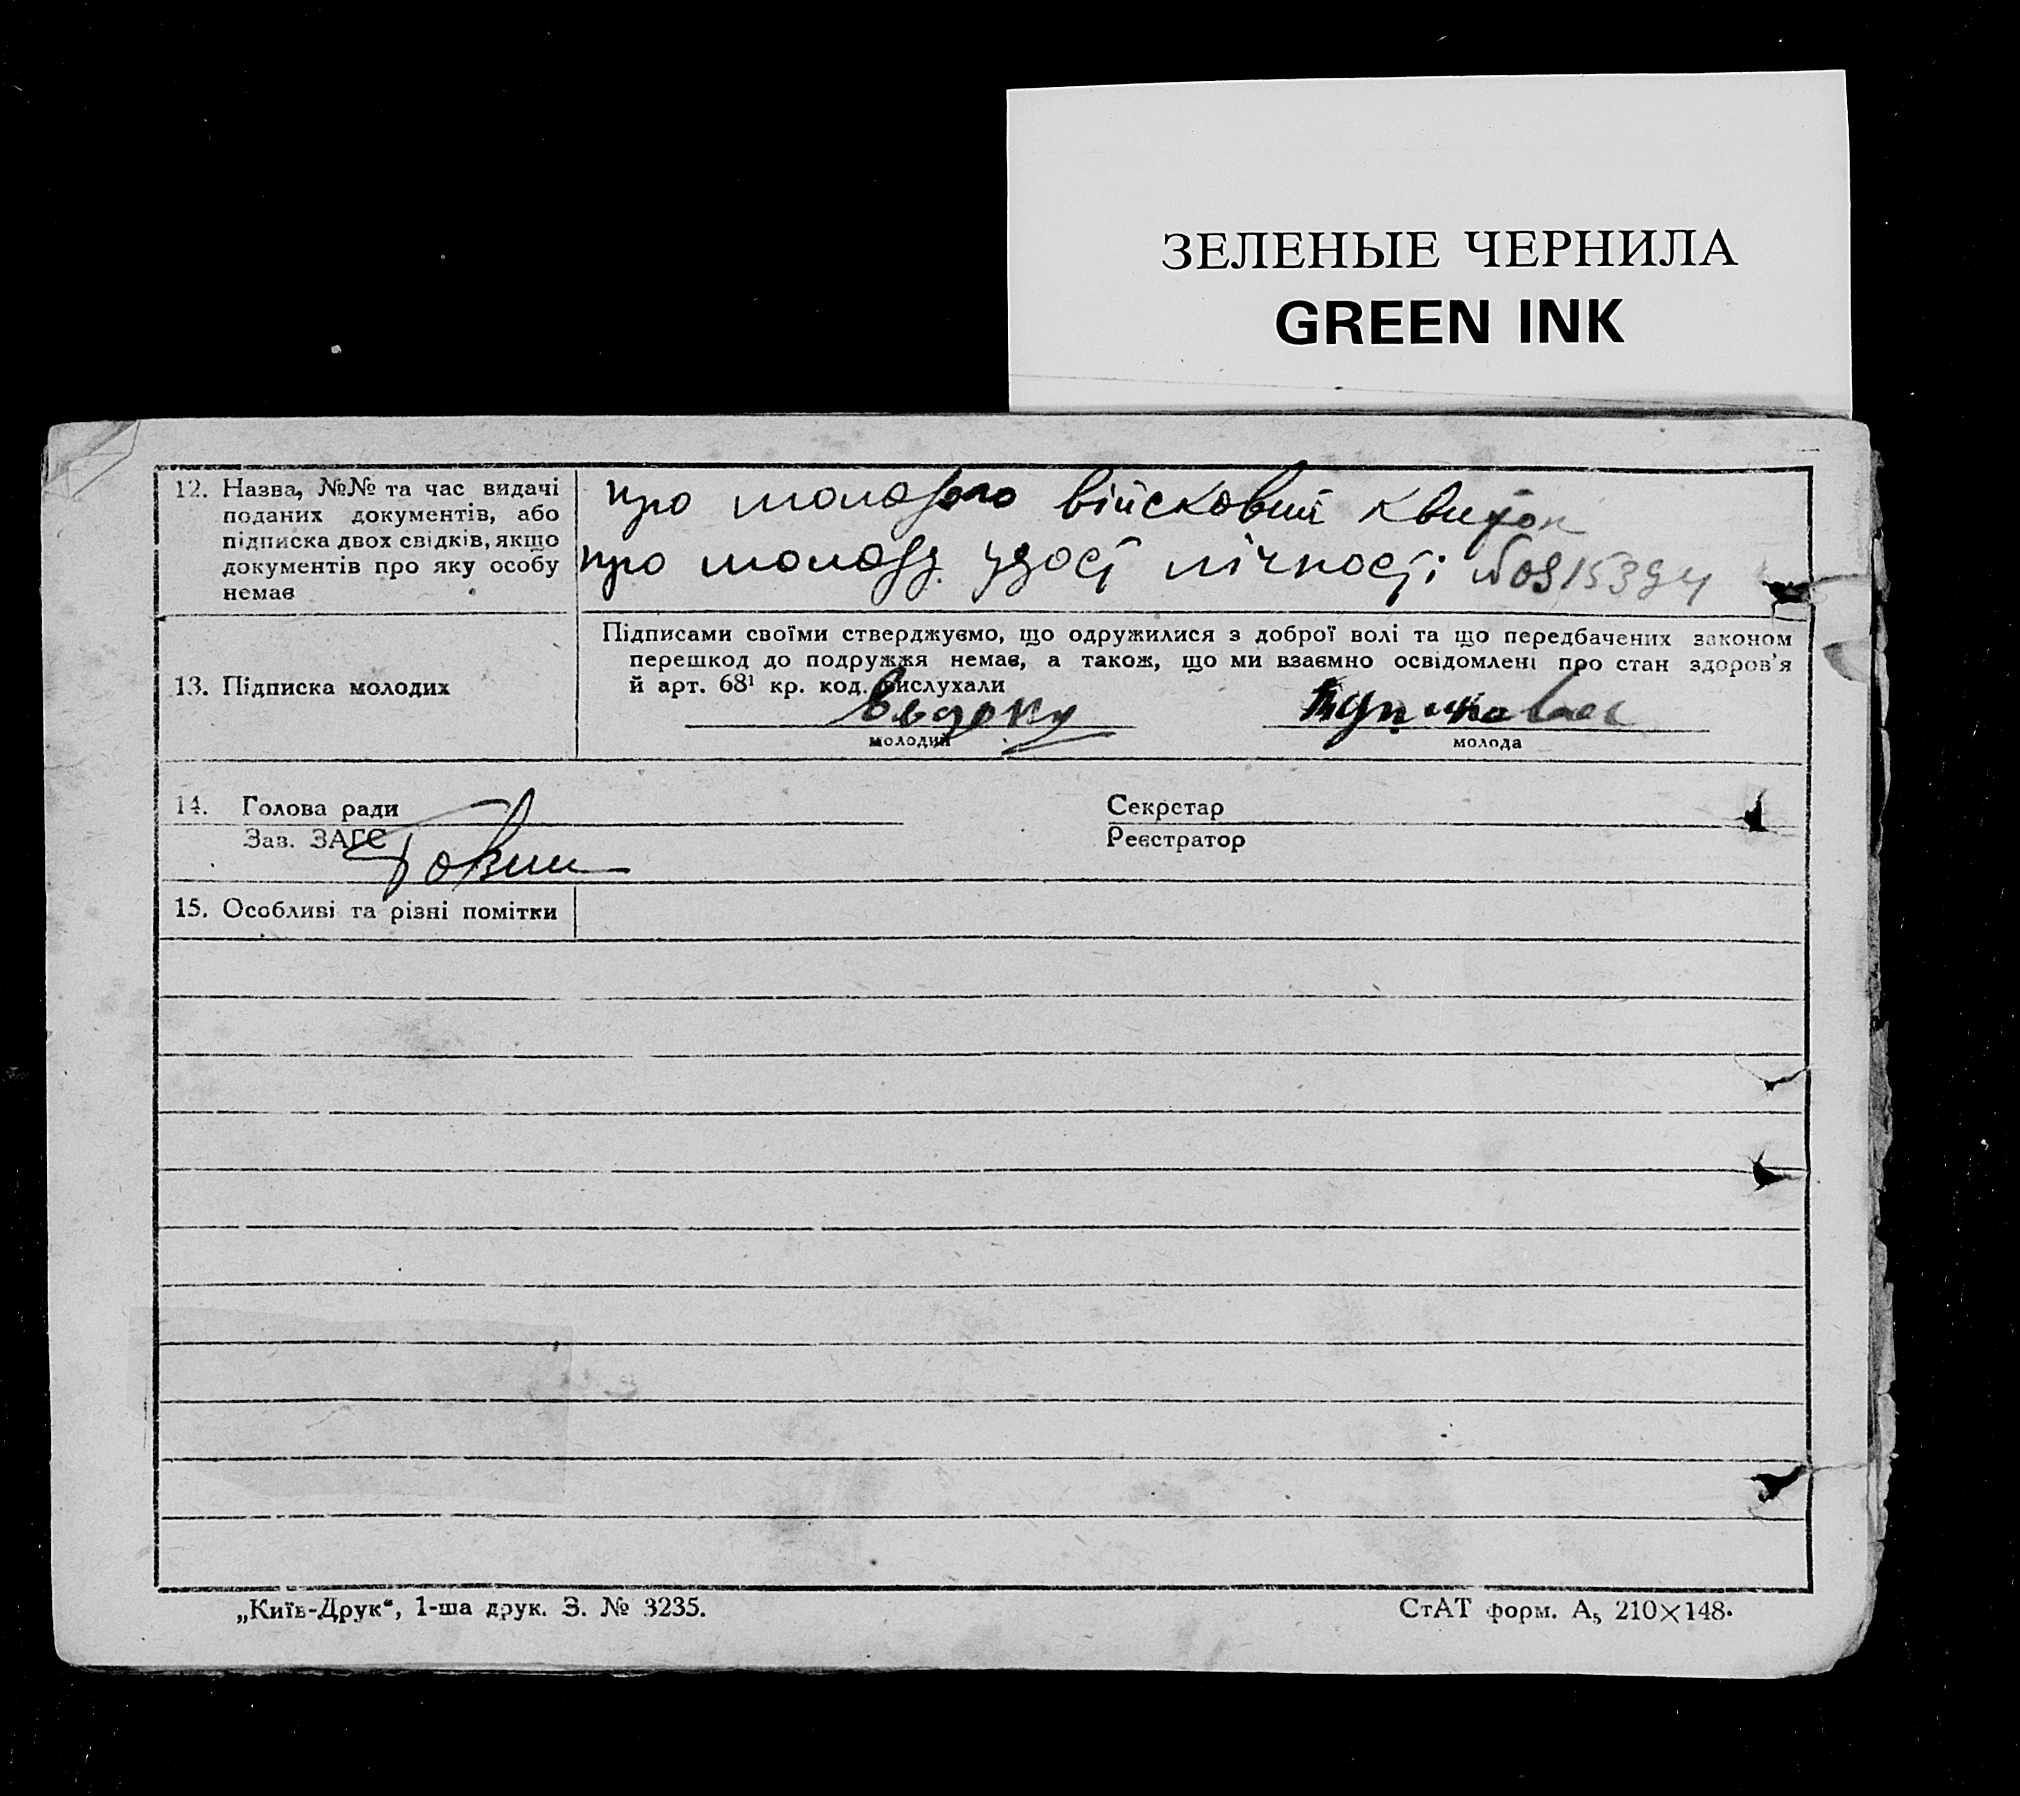 ЗЕЛЕНЫЕ ЧЕРНИЛА
GREEN INK
12. Назва, №№ та час видачі
поданих документів, або
підписка двох свідків, якщо
документів про яку особу
немає
про молодого військовий квиток
про молоду удост лічності №0915394
13. Підписка молодих
Підписами своїми стверджуємо, що одружилися з доброї волі та що передбачених законом
перешкод до подружжя немає, а також, що ми взаємно освідомлені про стан здоров'я
й арт. 68¹ кр. код. вислухали
молодий
молода
14. Голова ради
Секретар
Зав. ЗАГС
Реєстратор
15. Особливі та різні помітки
„Київ-Друк“, 1-ша друк. З. № 3235.
СтАТ форм. А₅ 210×148.